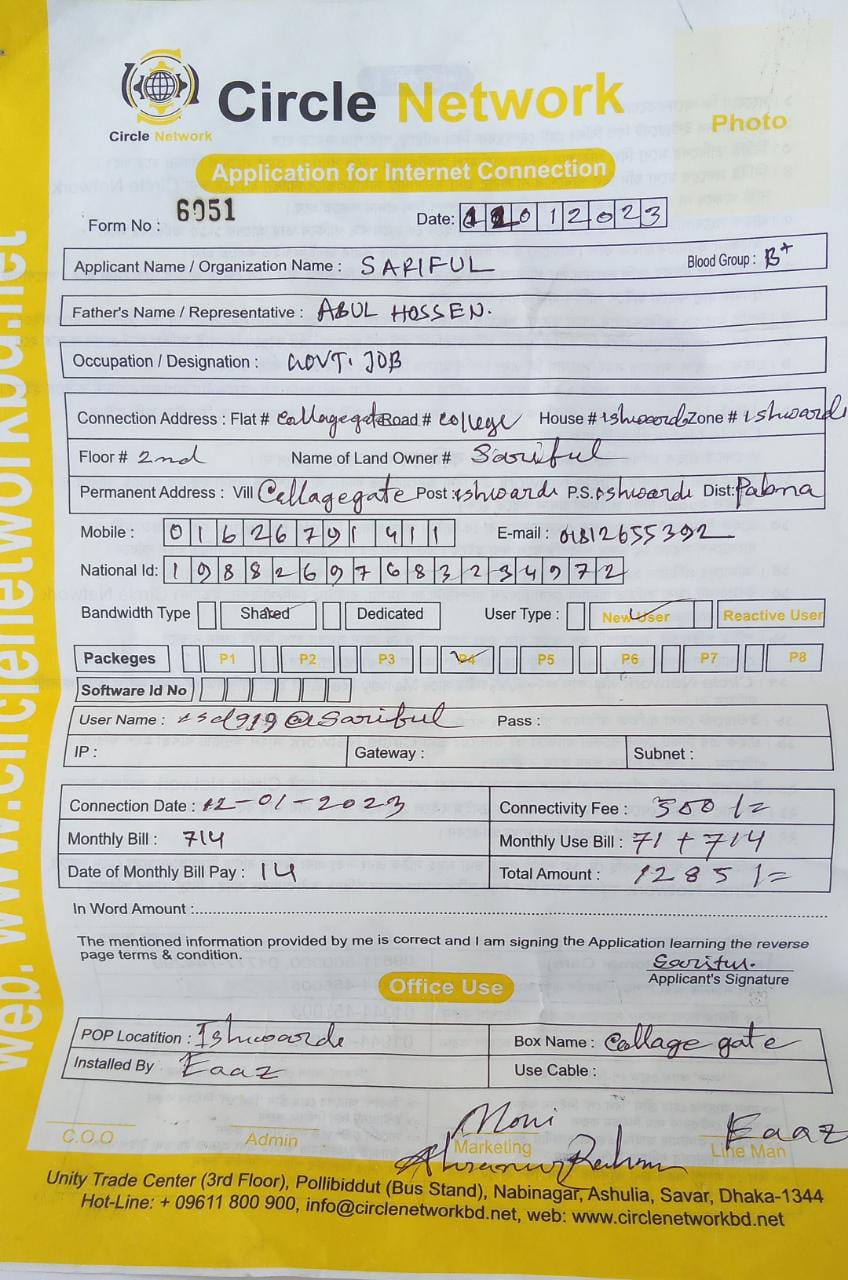 Circle Network
Circle Network
Photo
Application for Internet Connection
Form No : 6051
Date: 12012023
Applicant Name / Organization Name : SARIFUL Blood Group : B+
Father's Name / Representative : ABUL HOSSEN.
Occupation / Designation : GOVT. JOB
Connection Address : Flat # Collagegate Road # college House # ishwardi Zone # ishwardi
Floor # 2nd Name of Land Owner # Sariful
Permanent Address : Vill Collagegate Post : ishwardi P.S. ishwardi Dist: Pabna
Mobile : 01626791411 E-mail : 01812655392
National Id: 19882697683234972
Bandwidth Type Shared Dedicated User Type : New User Reactive User
Packeges P1 P2 P3 P4 P5 P6 P7 P8
Software Id No
User Name : @Sariful Pass :
IP : Gateway : Subnet :
Connection Date : 12-01-2023 Connectivity Fee : 500/=
Monthly Bill : 714 Monthly Use Bill : 71 + 714
Date of Monthly Bill Pay : 14 Total Amount : 1285/=
In Word Amount :
The mentioned information provided by me is correct and I am signing the Application learning the reverse
page terms & condition.
Sariful.
Applicant's Signature
Office Use
POP Locatition : Ishwardi Box Name : Collage gate
Installed By Eaaz Use Cable :
Moni Eaaz
C.O.O Admin Marketing Line Man
Unity Trade Center (3rd Floor), Pollibiddut (Bus Stand), Nabinagar, Ashulia, Savar, Dhaka-1344
Hot-Line: + 09611 800 900, info@circlenetworkbd.net, web: www.circlenetworkbd.net
web. www.circlenetworkbd.net